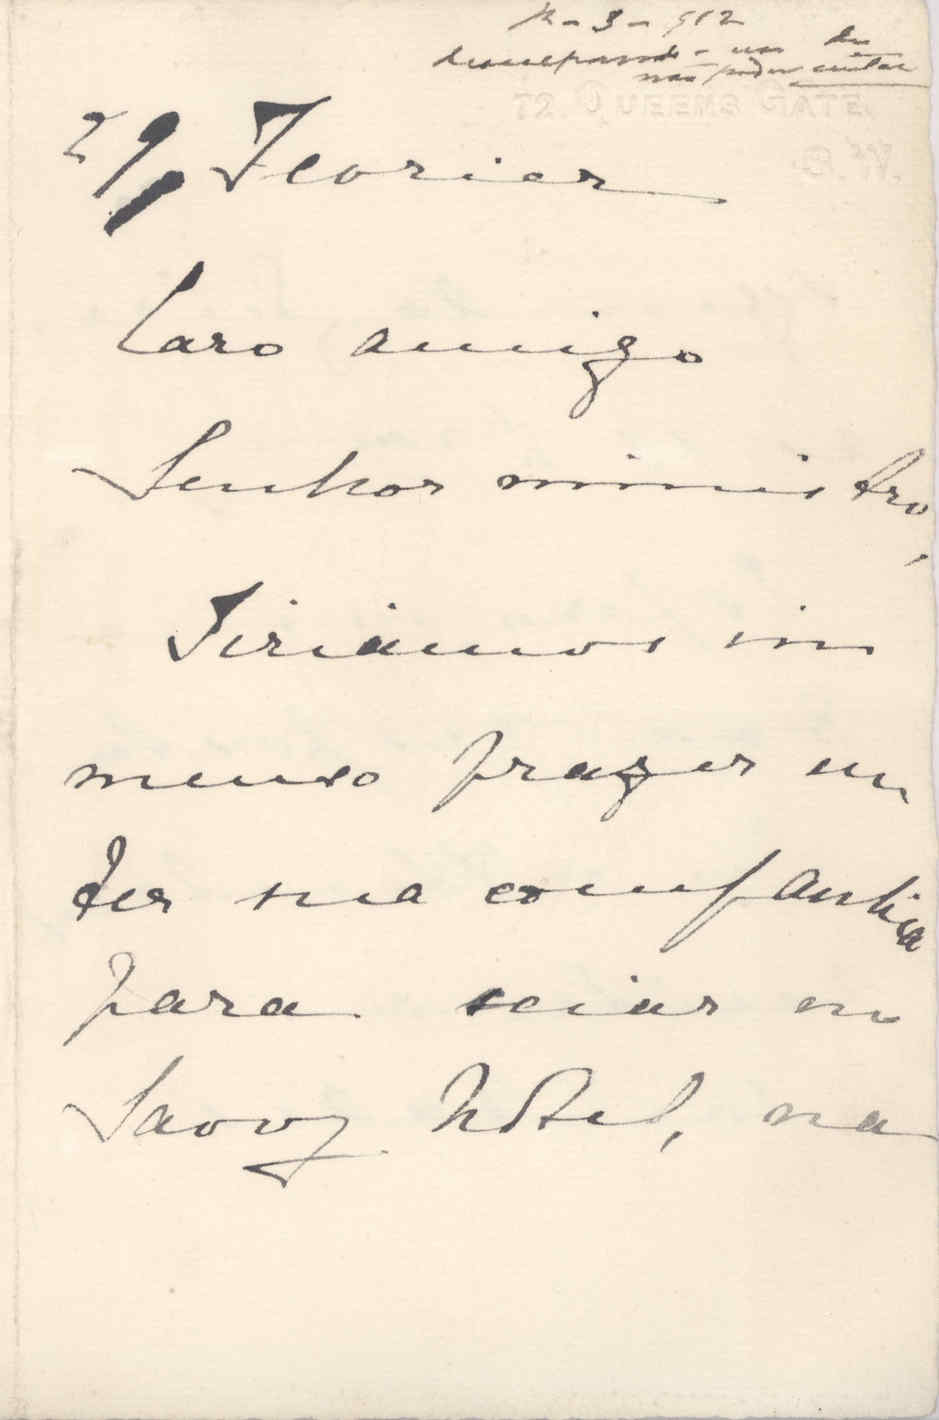 R - 3 - 912
desculpando-me de
não poder aceitar
72. QUEENS GATE.
S.W.
29 Fevrier
Caro amigo
Senhor ministro,
Teriamos im
menso prazer em
ter sua companhia
para ceiar no
Savoy Hôtel, na